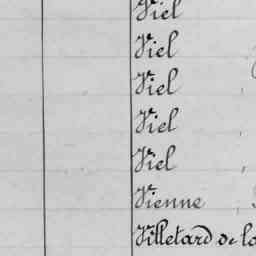 Viel
Viel
Viel
Viel
Viel
Vienne
Villetard de